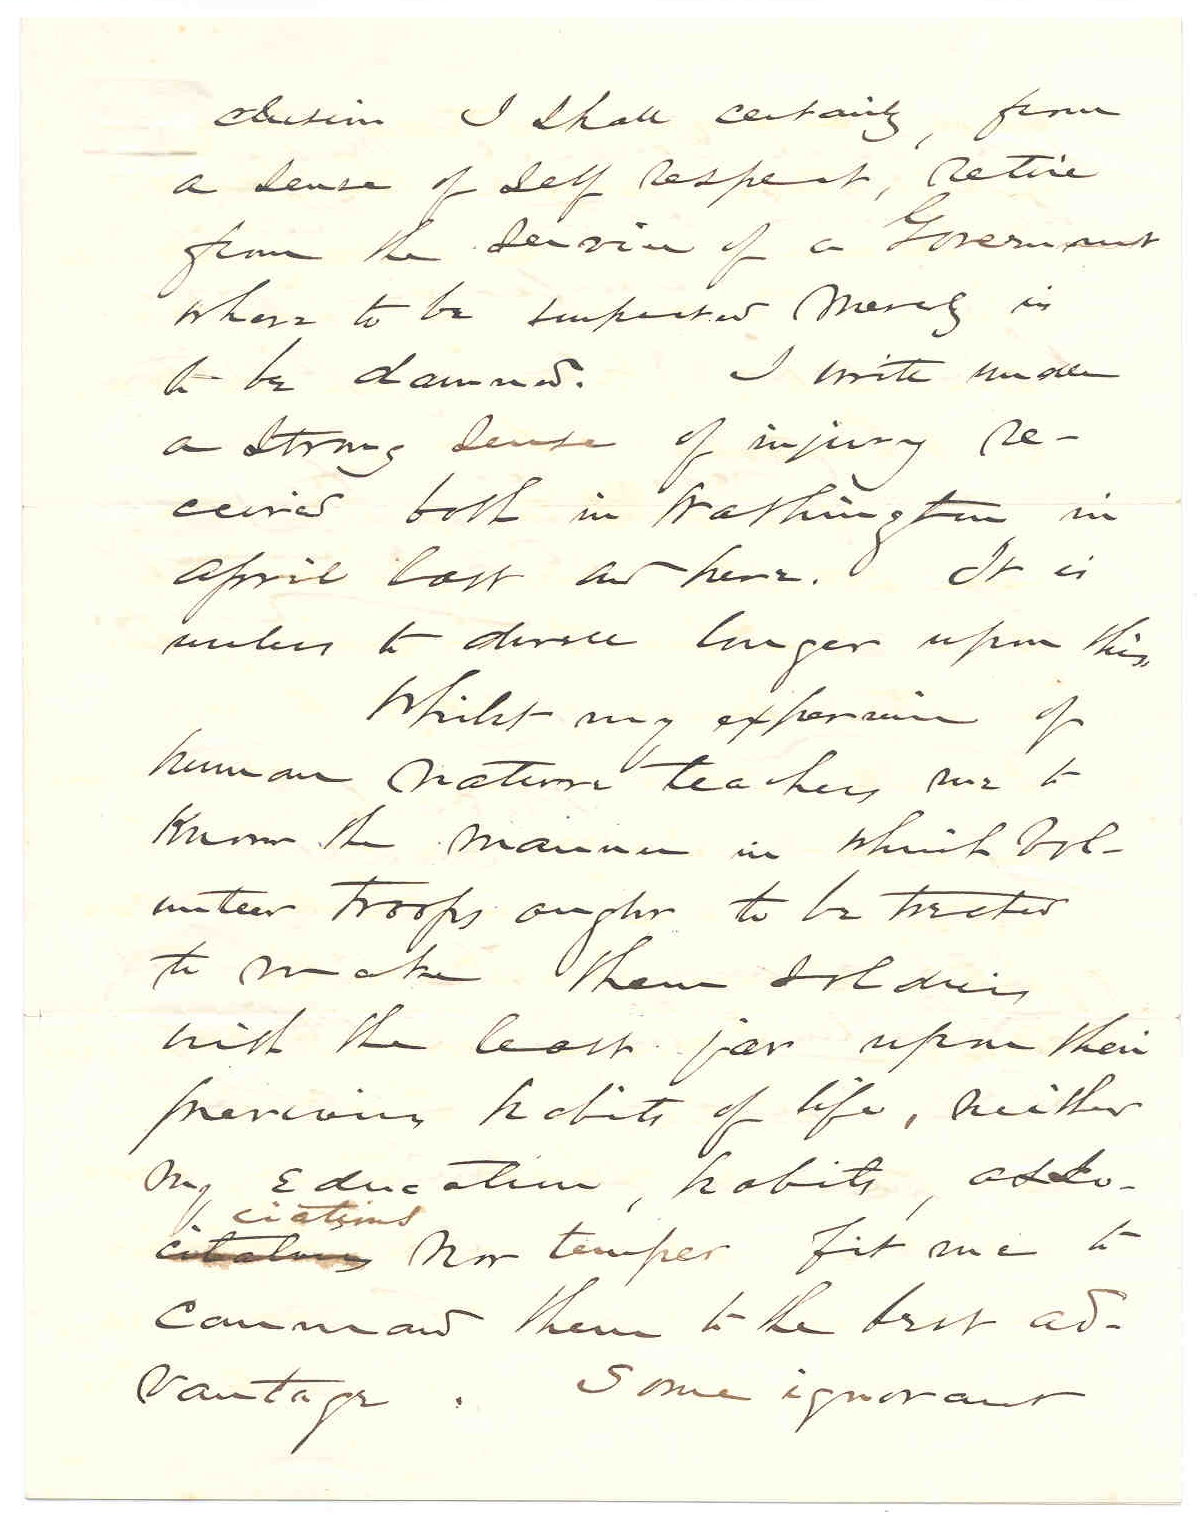 clusion I shall certainly, from
a sense of self respect, retire
from the service of a Government
where to be suspected merely is
to be damned. I write under
a strong sense of injury re-
ceived both in Washington in
April last and here. It is
useless to dwell longer upon this.
Whilst my experience of
human nature teaches me to
know the manner in which vol-
unteer troops ought to be treated
to make them soldiers
with the least jar upon their
previous habits of life, neither
my education, habits, asso-
ciations
citations nor temper fit me to
command them to the best ad-
vantage. Some ignorant